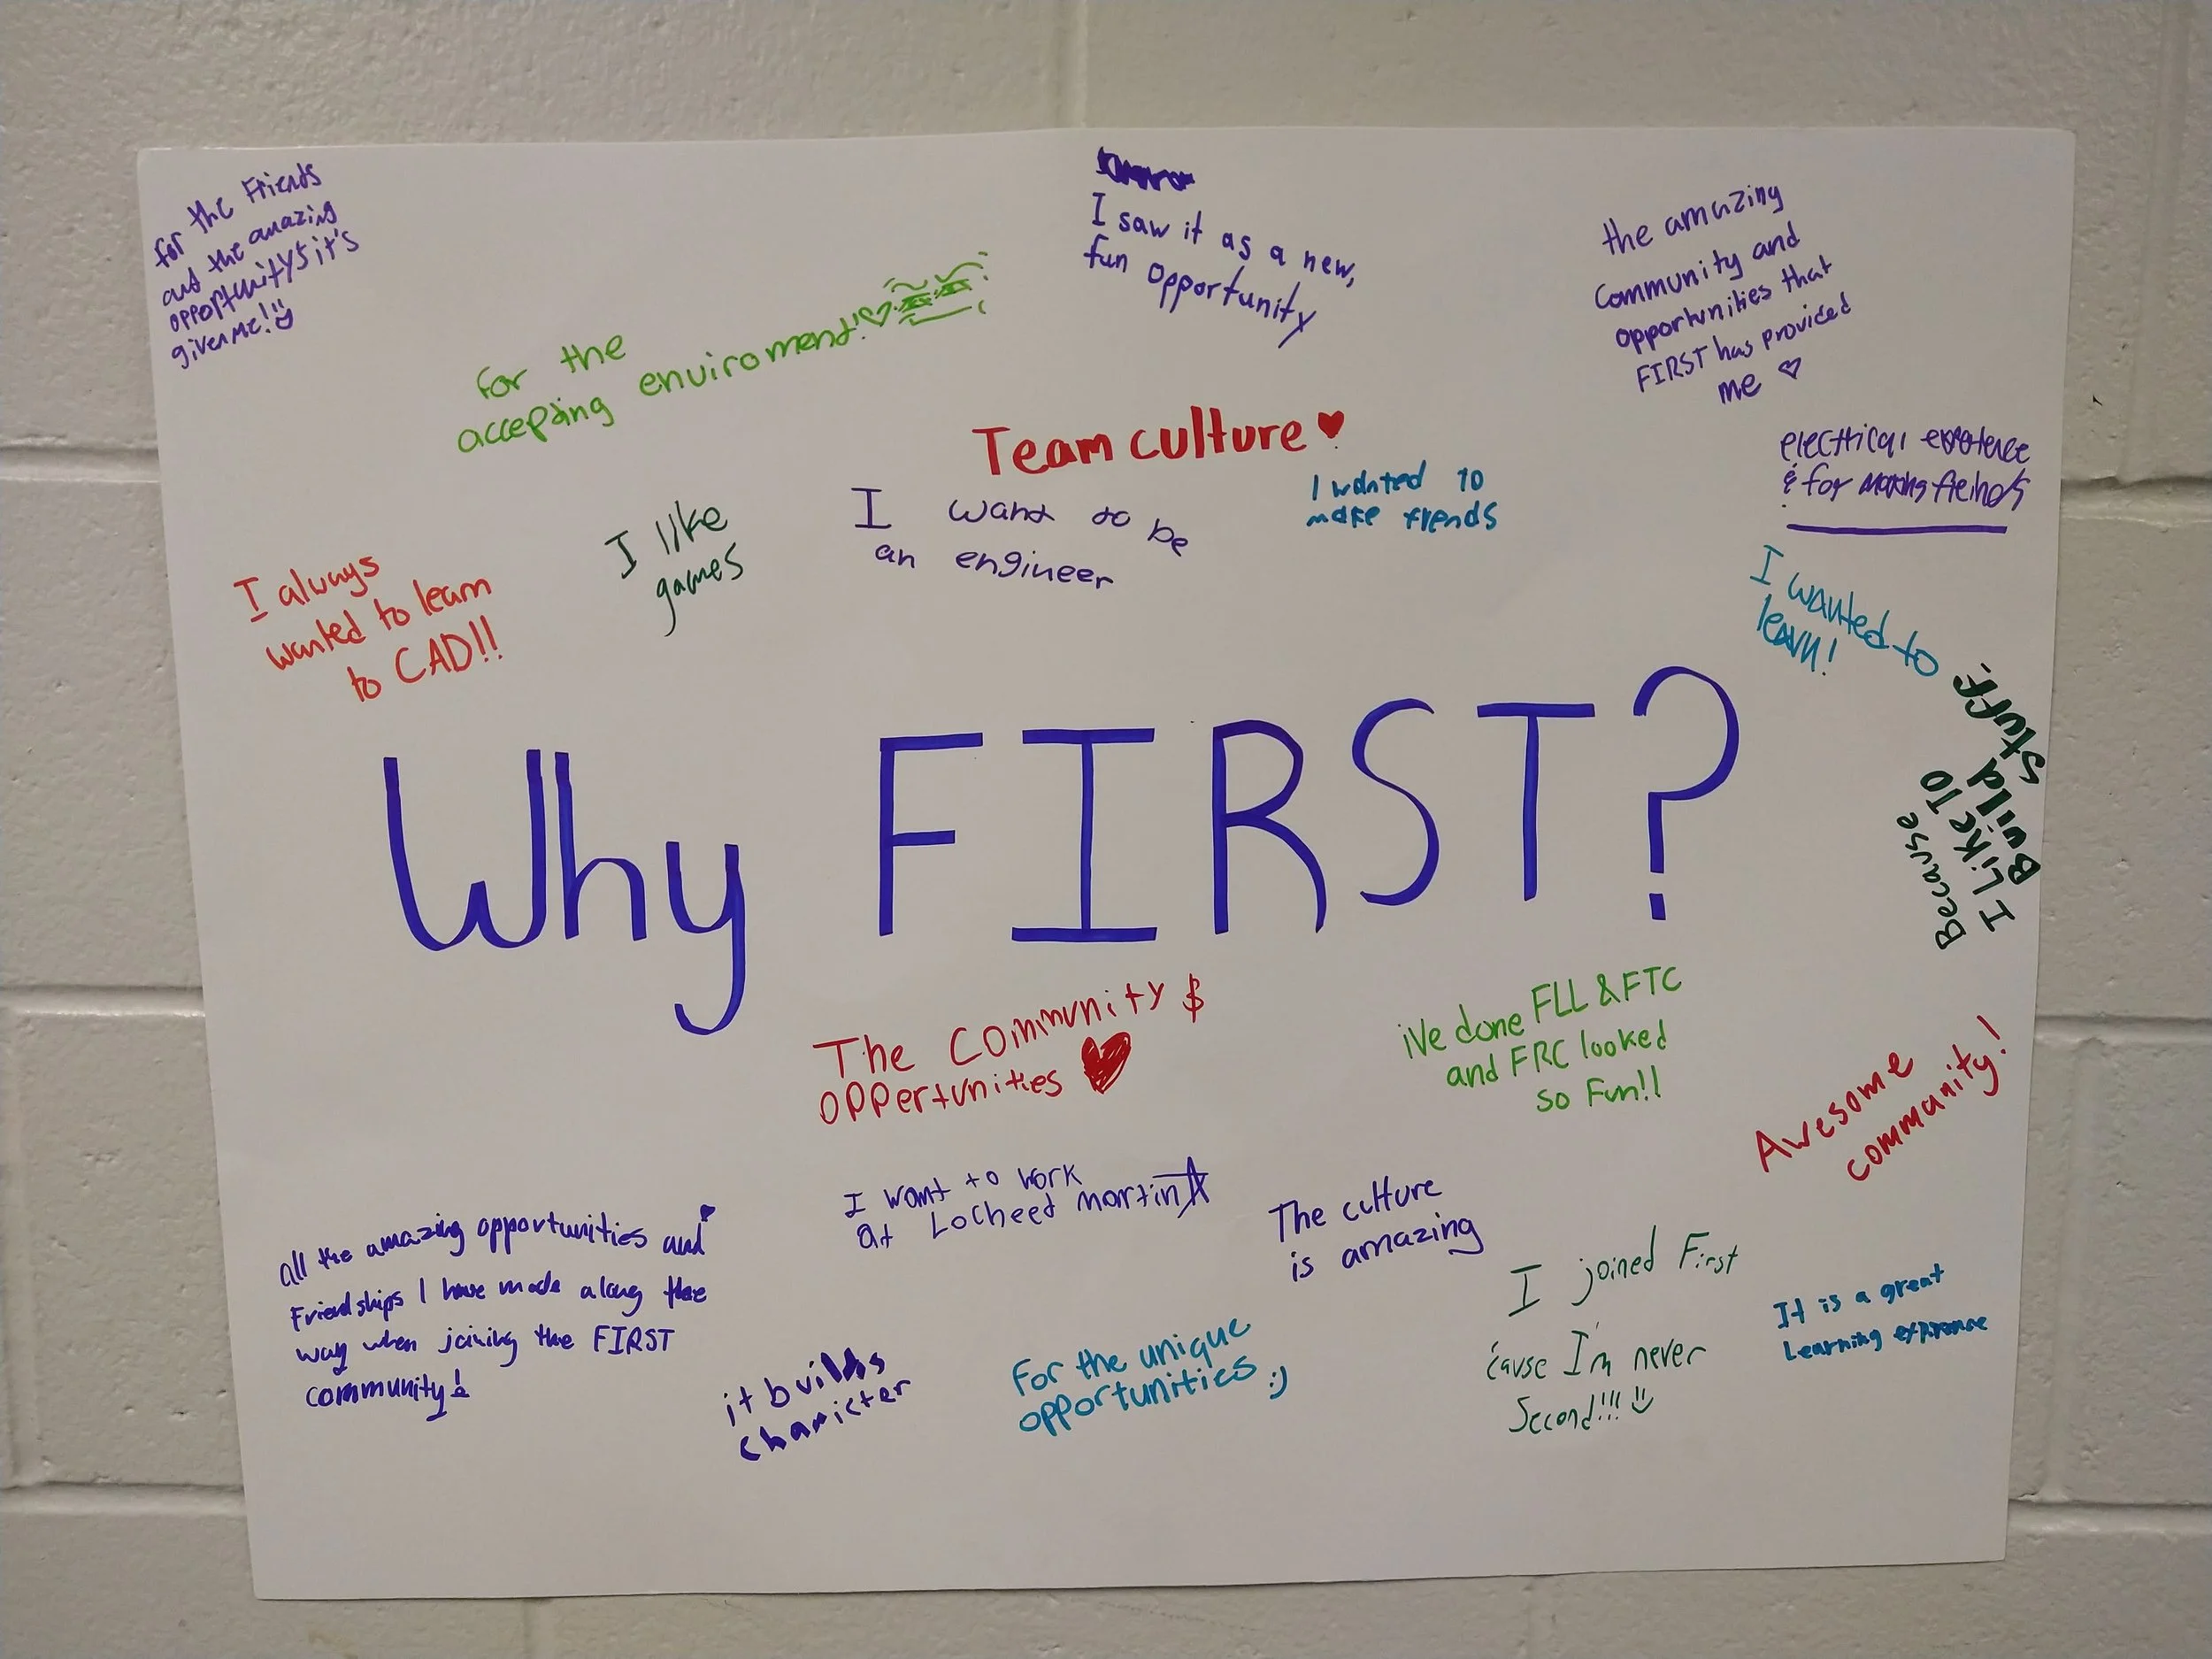 for the Friends
and the amazing
opportunitys it's
given me!!
for the
accepting enviroment!!
I saw it as a new,
fun opportunity
the amazing
Community and
opportunities that
FIRST has provided
me
Team culture
I wanted to
make friends
electrical
& for making
I want to be
an engineer
I like
games
I always
wanted to learn
to CAD!!
I wanted to
learn!
Because
I LiKe TO
Build
stuff.
Why FIRST?
The Community $
oppertunities
iVe done FLL & FTC
and FRC looked
so Fun!!
Awesome
community!
I want to work
at Locheed martin
The culture
is amazing
all the amazing opportunities and
Friendships I have made along the
way when joining the FIRST
community!
it builds
For the unique
opportunities :)
I joined First
'cause I'm never
Second!!!
It is a great
Learning